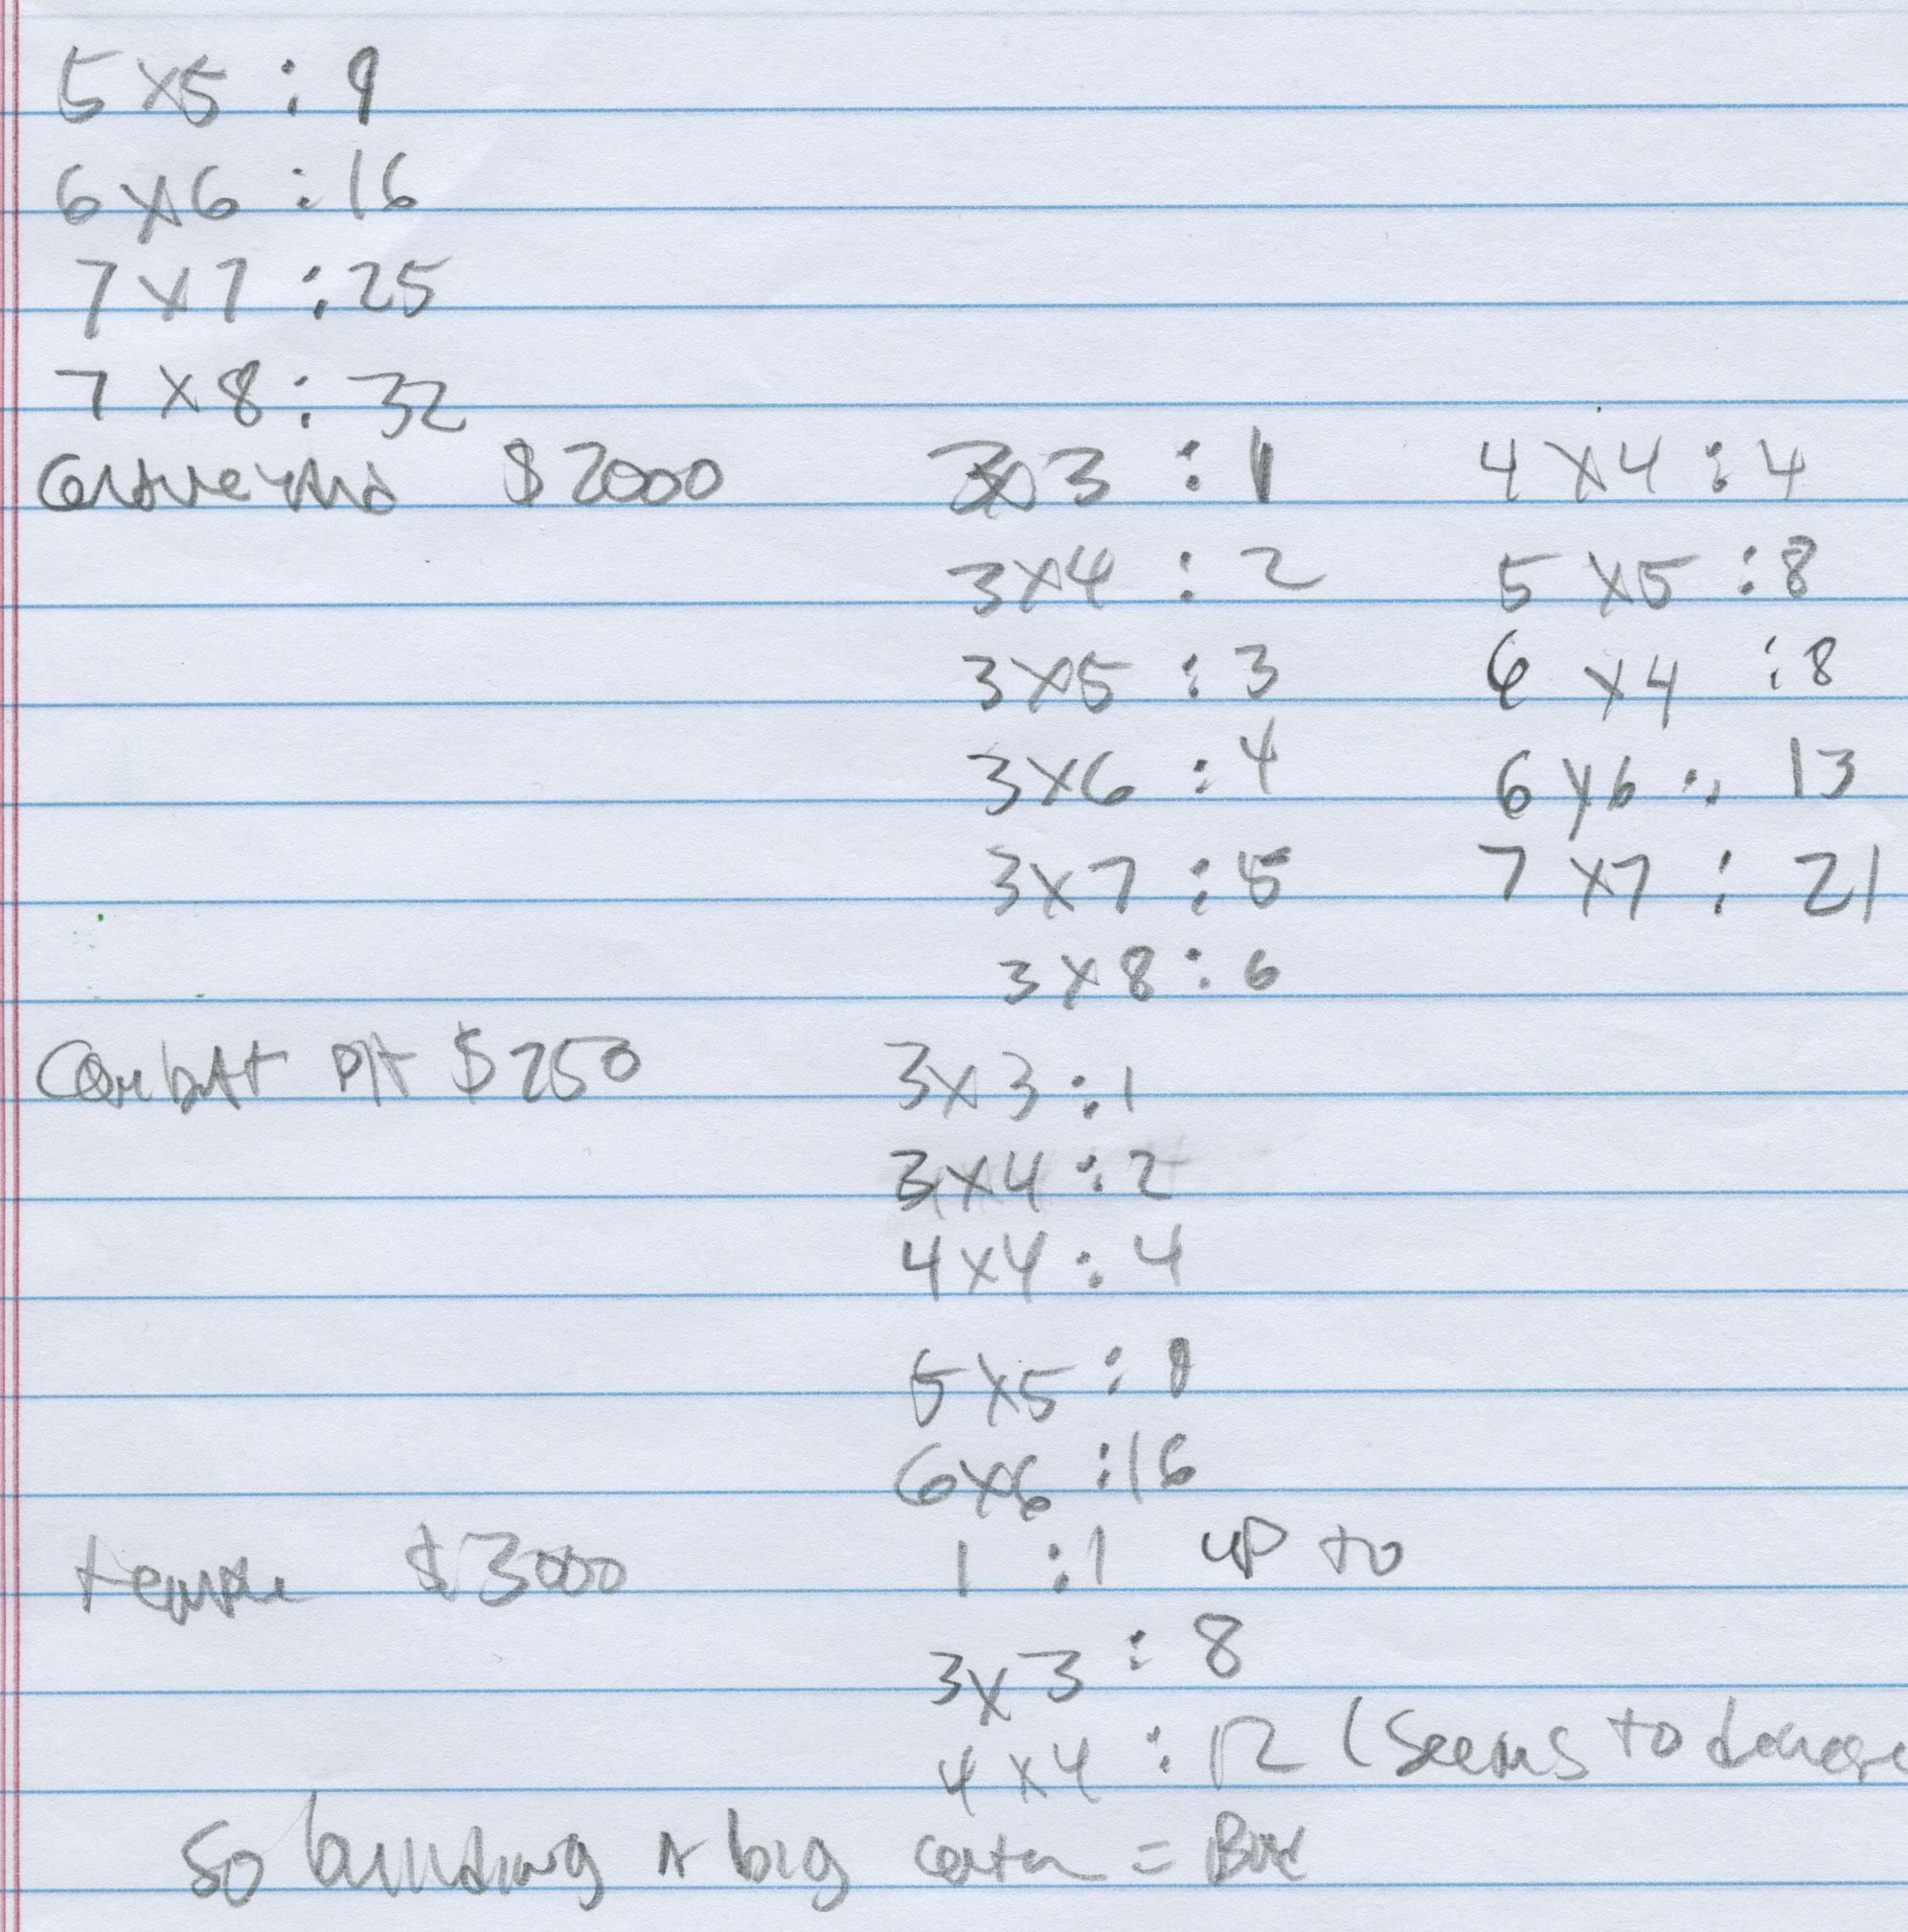 5 x 5 : 9
6 x 6 : 16
7 x 7 : 25
7 x 8 : 32
Graveyard $2000 3x3 : 1 4 x 4 : 4
3x4 : 2 5 x 5 : 8
3x5 : 3 6 x 4 : 8
3x6 : 4 6 x 6 : 13
3x7 : 5 7 x 7 : 21
3x8 : 6
Combat Pit $250 3x3 : 1
3x4 : 2
4x4 : 4
5x5 : 9
6x6 : 16
temple $3000 1 : 1 up to
3x3 : 8
4x4 : 12 (Seems to
So building a big = Bad